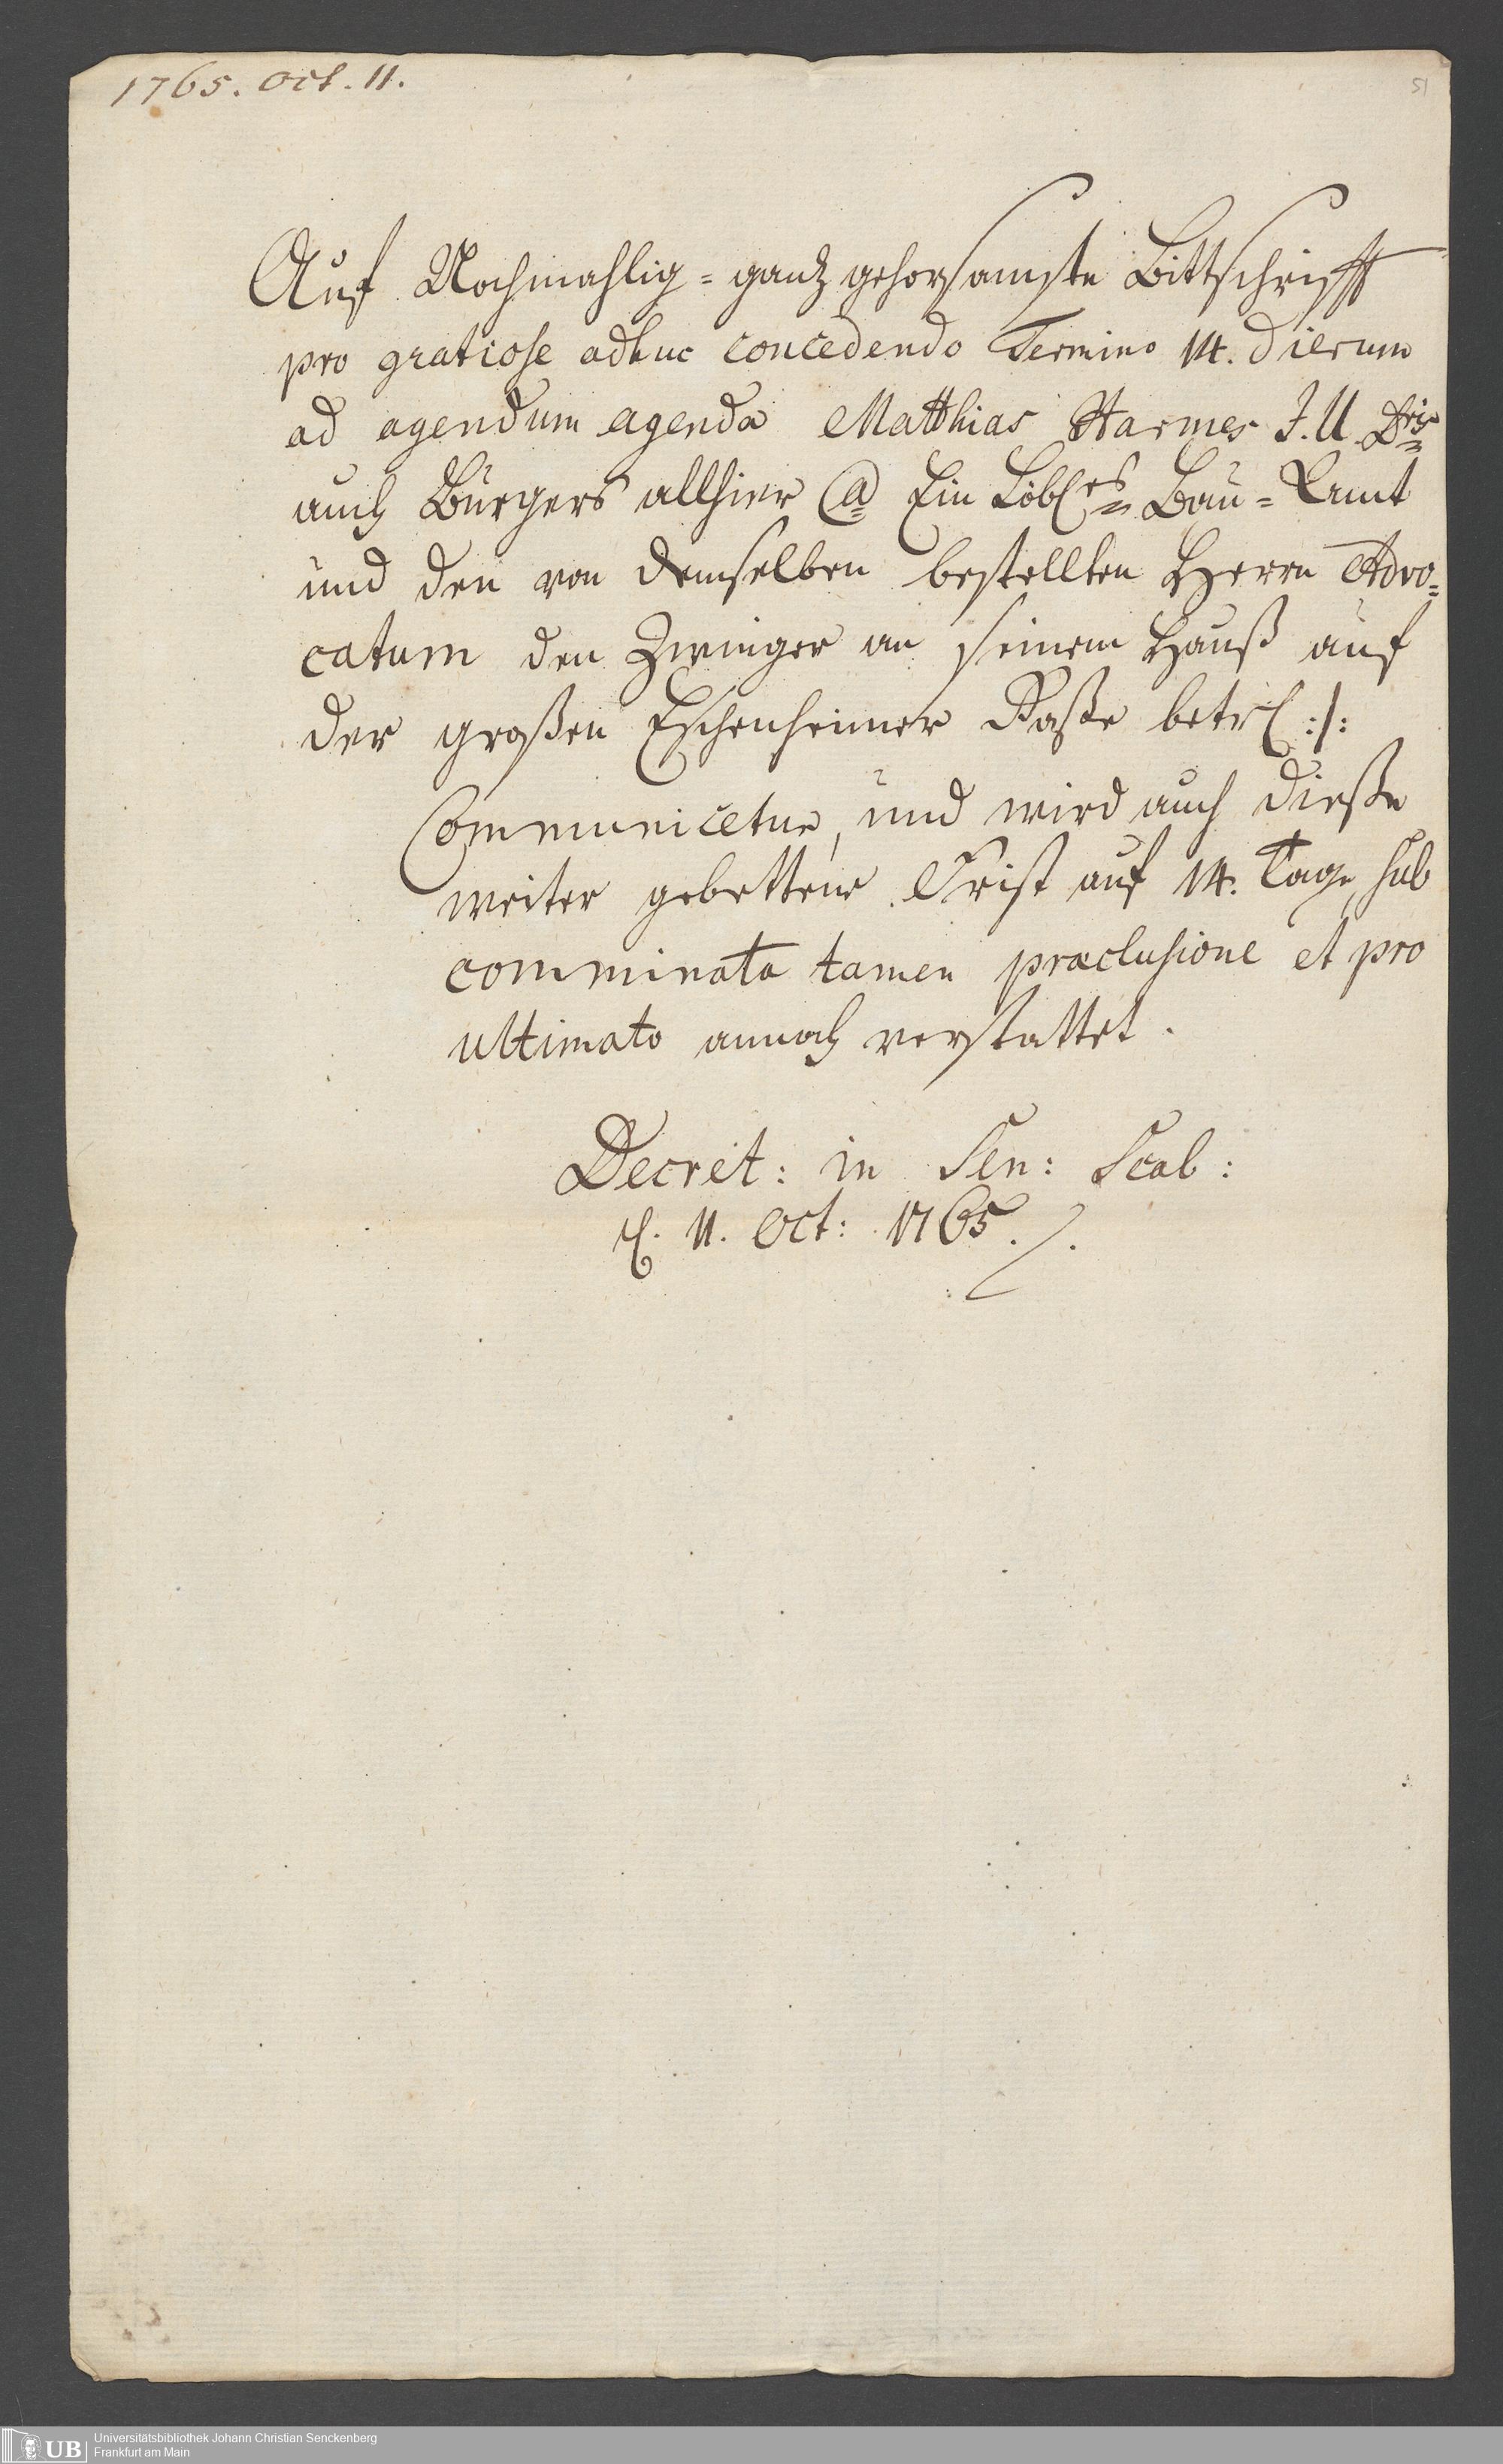 1765. Oct. 11.
51
Auf Nochmahlig = ganz gehorsamste Bittschrifft
pro gratiose adhuc concedendo Termino 14. dierum
ad agendum agenda Matthias Harmes J. U. Dris
auch Burgers allhier Ca Ein Löbl.es Bau = Amt
und den von demselben bestellten Herrn Advo=
catum den Zwinger an seinem Hauß auf
der großen Eschenheimer Gaße betrl :/:
Communicetur, und wird auch dieße
weiter gebettene Frist auf 14. Tage sub
comminata tamen praeclusione et pro
ultimato annoch verstattet.
Decret: in Sen: Scab:
d. 11. Oct: 1765.
UB
Universitätsbibliothek Johann Christian Senckenberg
Frankfurt am Main